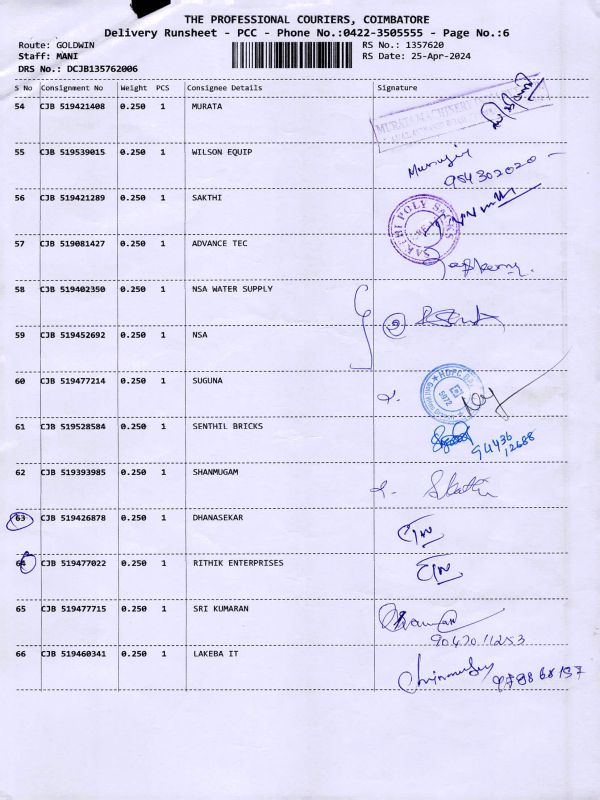 THE PROFESSIONAL COURIERS, COIMBATORE
Delivery Runsheet - PCC - Phone No.:0422-3505555 - Page No.:6
Route: GOLDWIN RS No.: 1357620
Staff: MANI RS Date: 25-Apr-2024
DRS No.: DCJB135762006
S No Consignment No Weight PCS Consignee Details Signature
54 CJB 519421408 0.250 1 MURATA
55 CJB 519539015 0.250 1 WILSON EQUIP
954302020
56 CJB 519421289 0.250 1 SAKTHI
SAKTHI POLY SACKS
57 CJB 519081427 0.250 1 ADVANCE TEC
58 CJB 519402350 0.250 1 NSA WATER SUPPLY
59 CJB 519452692 0.250 1 NSA
60 CJB 519477214 0.250 1 SUGUNA
HDFC
5972
61 CJB 519528584 0.250 1 SENTHIL BRICKS
94436
12688
62 CJB 519393985 1 SHANMUGAM
0.250
63 CJB 519426878 0.250 1 DHANASEKAR
64 CJB 519477022 0.250 1 RITHIK ENTERPRISES
65 CJB 519477715 0.250 1 SRI KUMARAN
66 CJB 519460341 0.250 1 LAKEBA IT